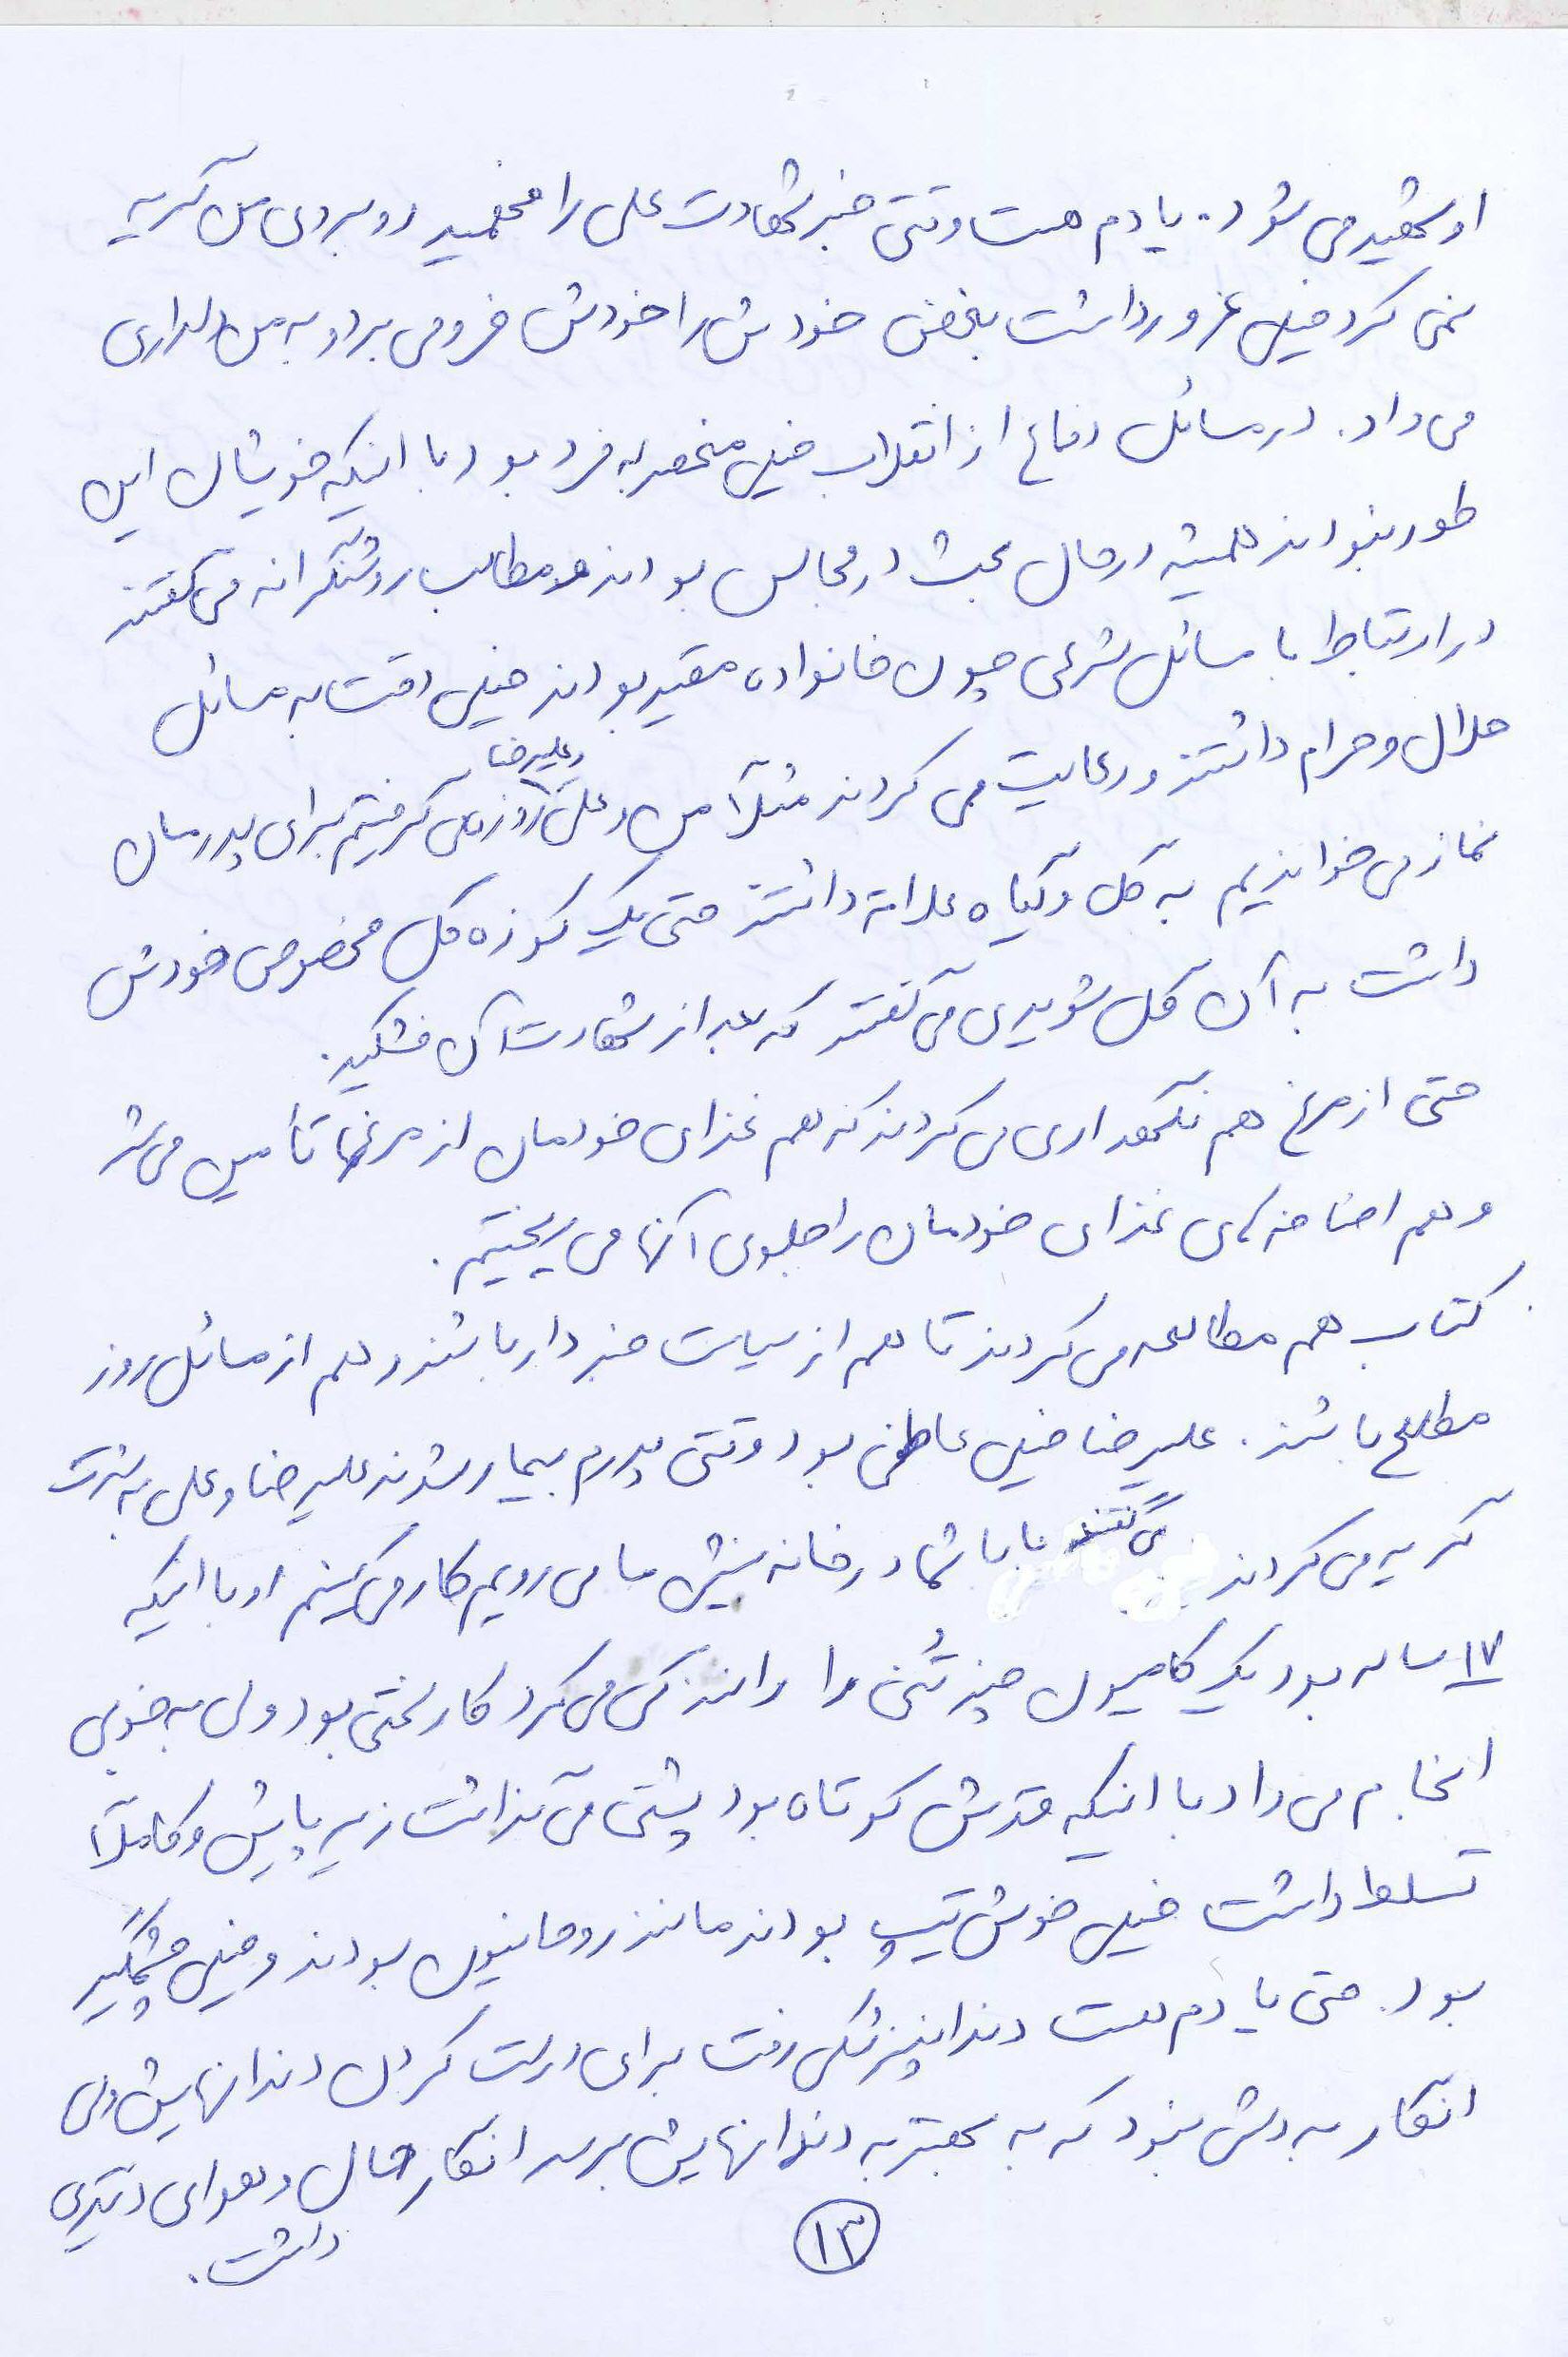 او شهید می شود. یادم هست وقتی خبر شهادت علی را فهمید روبروی من گریه
نمی کرد خیلی غرور داشت بغض خودش را خودش فرو می برد و به من دلداری
می داد. در مسائل دفاع از انقلاب خیلی منحصر به فرد بود با اینکه خودشان این
طور نبودند همیشه در حال بحث در مجالس بودند و مطالب روشنگرانه می گفتند
در ارتباط با مسائل شرعی چون خانواده مقید بودند خیلی دقت به مسائل
حلال و حرام داشتند و رعایت می کردند مثلاً من و علی و علیرضا روزه می گرفتیم برای پدرمان
نماز می خواندیم به گل و گیاه علاقه داشتند حتی یک کوزه گل مخصوص خودش
داشت به آن گل شویدی می گفتند که بعد از شهادتشان خشکید.
حتی از مرغ هم نگهداری می کردند که هم غذای خودمان از مرغها تأمین می شد
و هم اضافه های غذای خودمان را جلوی آنها می ریختیم.
کتاب هم مطالعه می کردند تا هم از سیاست خبردار باشند و هم از مسائل روز
مطلع باشند. علیرضا خیلی عاطفی بود وقتی پدرم بیمار شدند علیرضا و علی به شدت
گریه می کردند می گفتند بابا شما در خانه بنشین ما می رویم کار می کنیم او با اینکه
۱۷ ساله بود یک کامیون چند تُنی را رانندگی می کرد کار سختی بود ولی به خوبی
انجام می داد با اینکه قدش کوتاه بود پشتی می گذاشت زیر پایش و کاملاً
تسلط داشت خیلی خوش تیپ بودند مانند روحانیون بودند و خیلی چشمگیر
بود. حتی یادم هست دندانپزشکی رفت برای درست کردن دندانهایش ولی
انگار به دلش نبود که به بهتر به دندانهایش برسد انگار حال و هوای دیگری
داشت.
۱۳